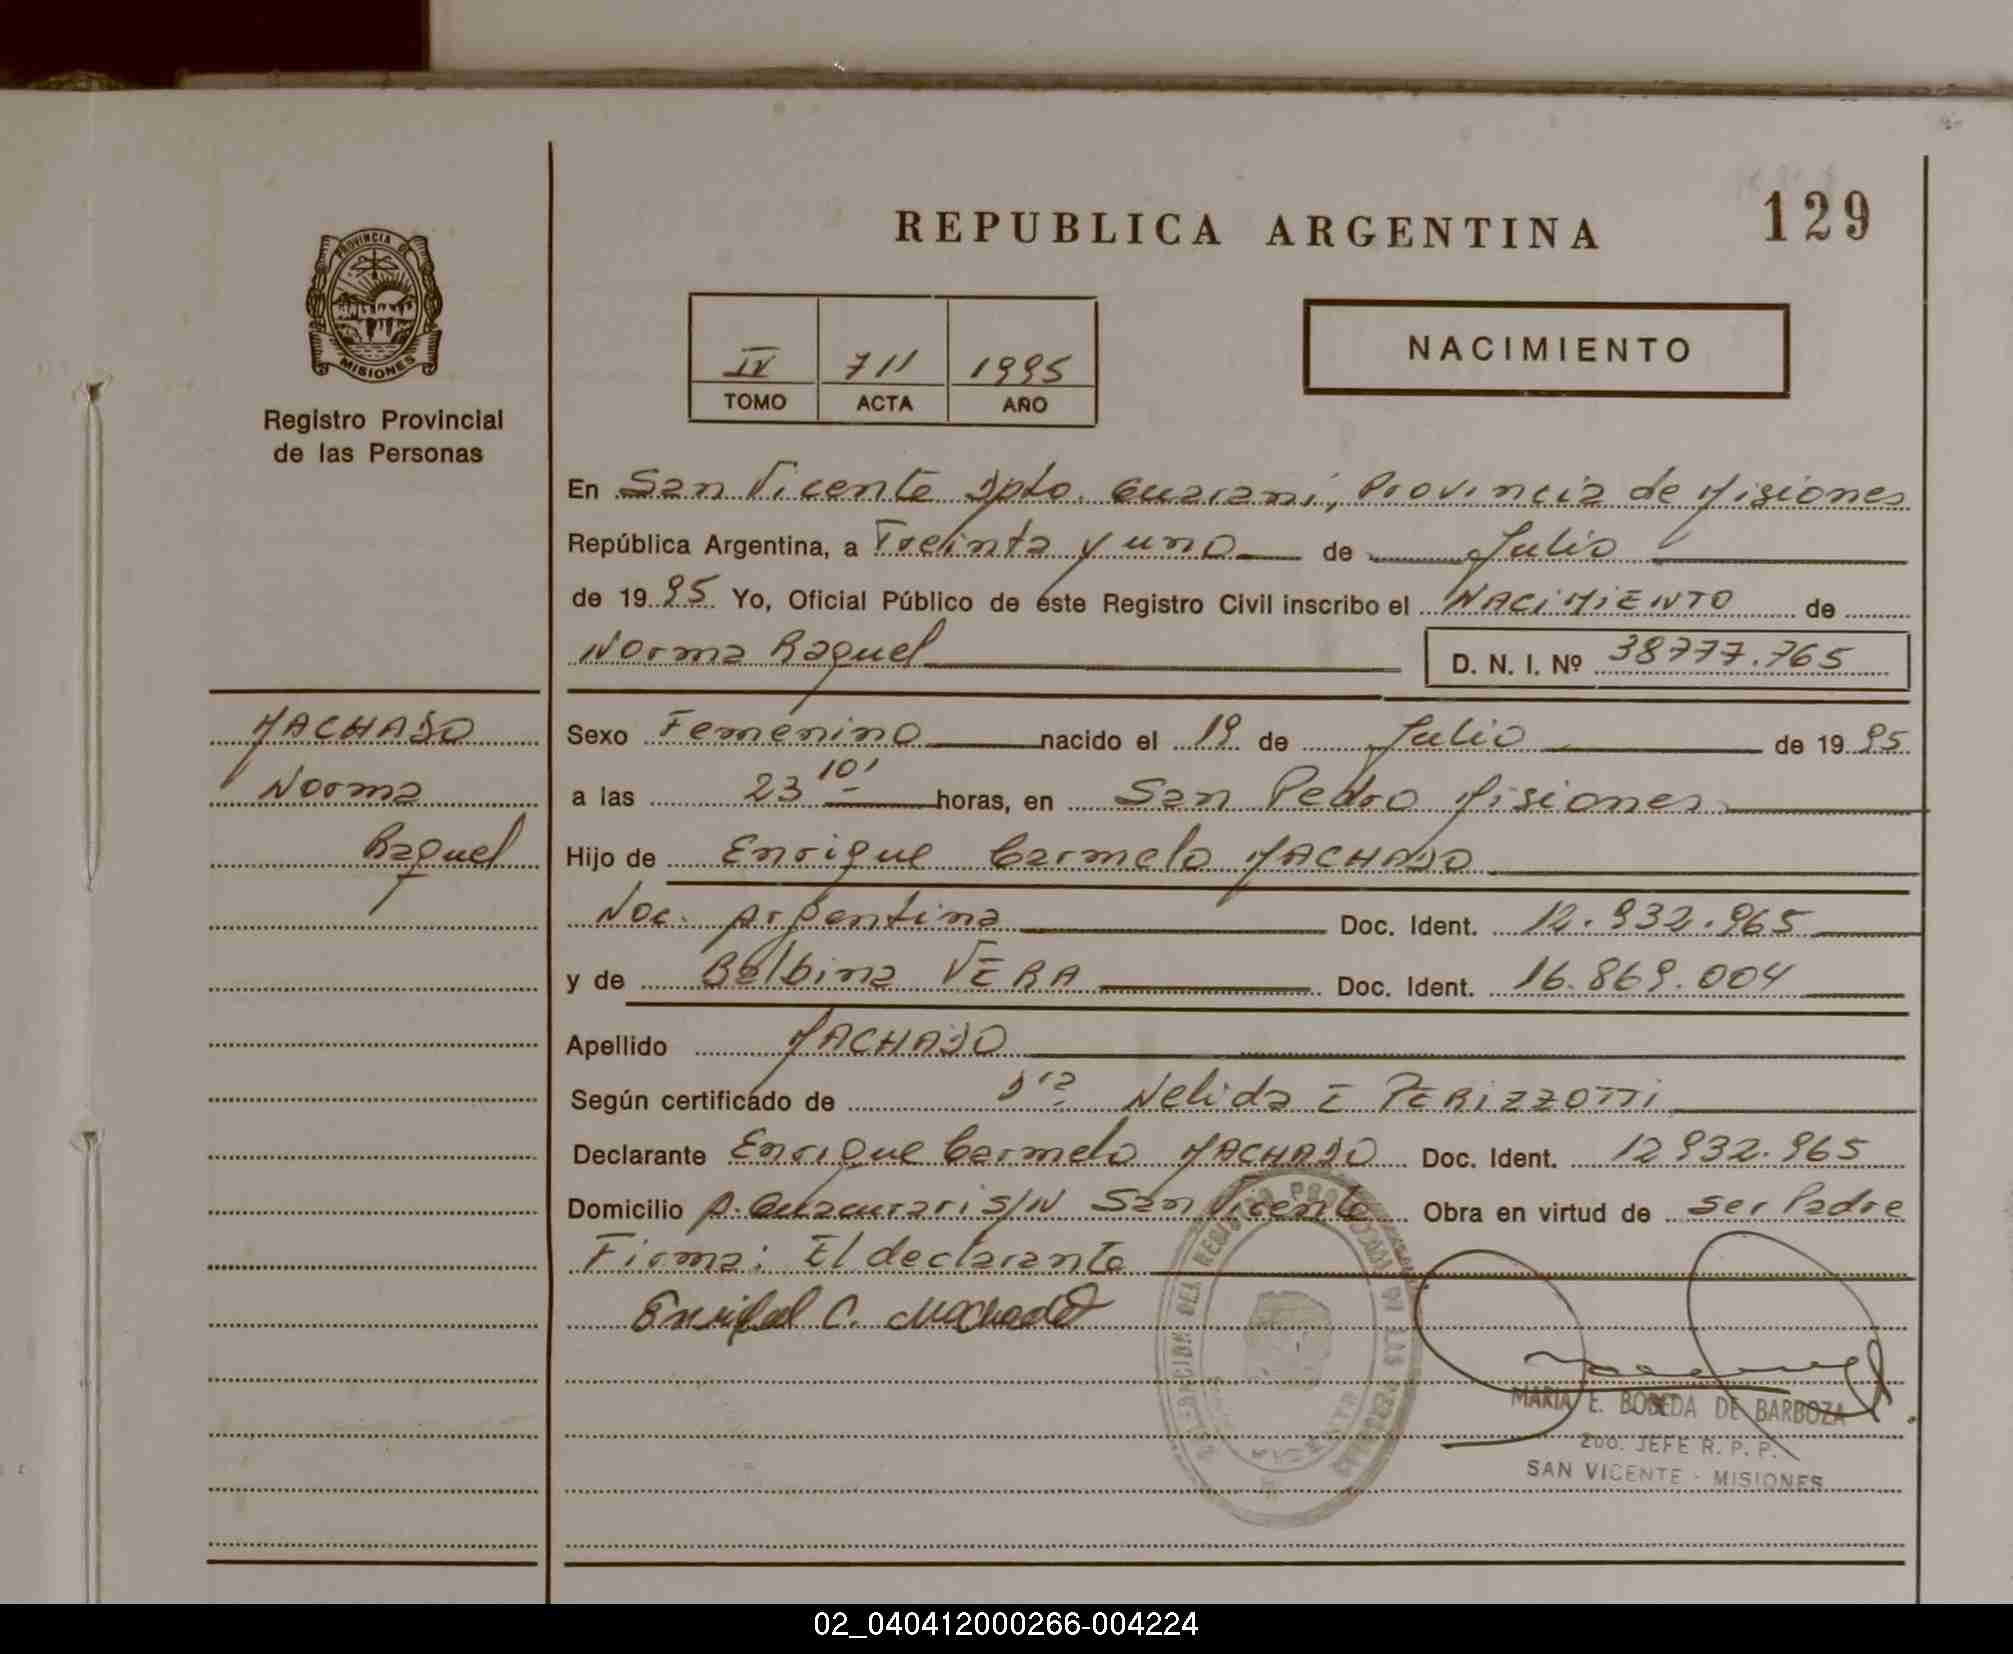 REPUBLICA ARGENTINA
129
PROVINCIA DE
MISIONES
Registro Provincial
de las Personas
IV 711 1995
TOMO ACTA AÑO
NACIMIENTO
En San Vicente Dpto. Guaraní, Provincia de Misiones
República Argentina, a Treinta y uno de Julio
de 1995 Yo, Oficial Público de este Registro Civil inscribo el NACIMIENTO de
Norma Raquel D. N. I. Nº 38777.765
MACHADO
Norma
Raquel
Sexo Femenino nacido el 19 de Julio de 1995
a las 23 10' horas, en San Pedro Misiones
Hijo de Enrique Carmelo MACHADO
Nac. Argentina Doc. Ident. 12.932.965
y de Balbina VERA Doc. Ident. 16.869.004
Apellido MACHADO
Según certificado de Dra Nelida E PERIZZOTTI
Declarante Enrique Carmelo MACHADO Doc. Ident. 12932.965
Domicilio A. Guacurari S/N San Vicente Obra en virtud de ser Padre
Firma: El declarante
C. Machado
MARIA E. BOBEDA DE BARBOZA
2DO. JEFE R. P. P.
SAN VICENTE - MISIONES
02_040412000266-004224